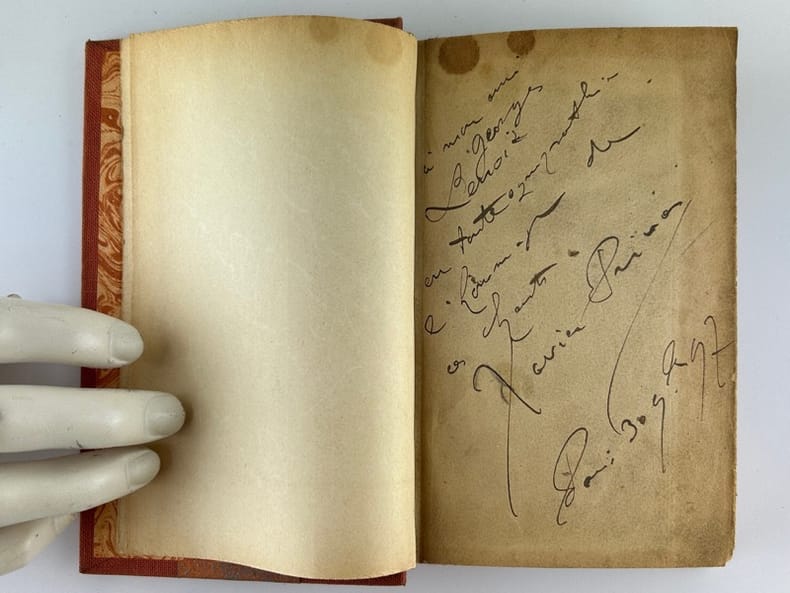 à mon ami
Georges
Lenoir
en toute sympathie
l'hommage de
ces chants
Xavier Privas
Paris 30 9bre 97